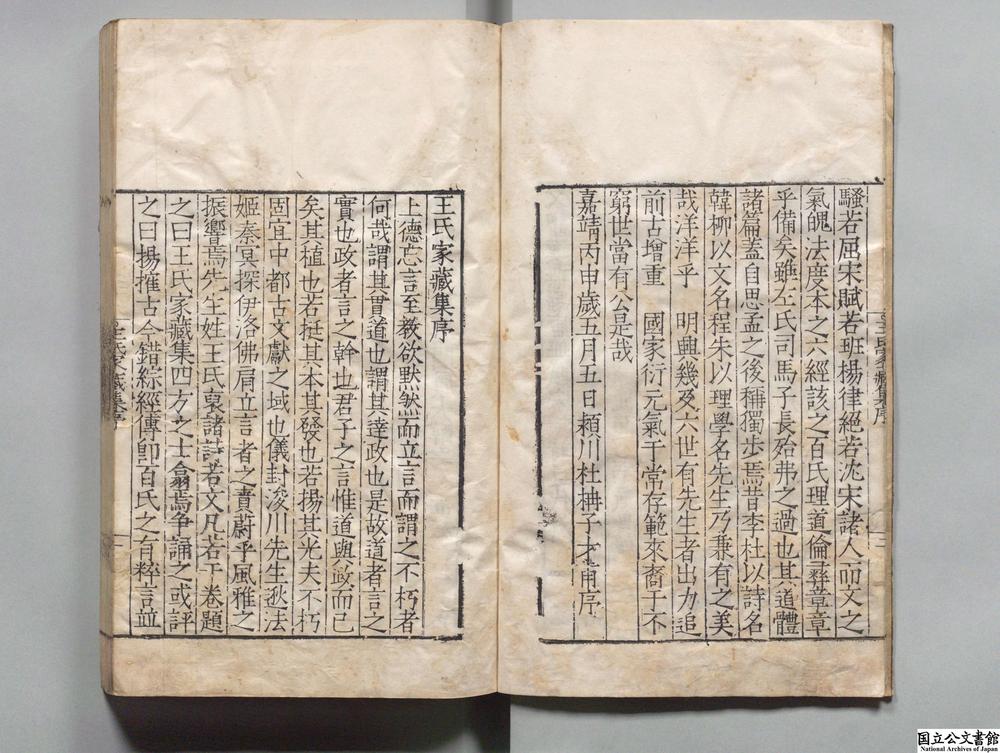 騷若屈宋賦若班楊律絕若沈宋諸人而文之
氣魄法度本之六經該之百氏理道倫彛章章
乎備矣雖左氏司馬子長殆弗之過也其道體
諸篇蓋自思孟之後稱獨步焉昔李杜以詩名
韓柳以文名程朱以理學名先生乃兼有之美
哉洋洋乎 明興幾及六世有先生者出力追
前古增重 國家衍元氣于常存範來裔于不
窮世當有公是哉
嘉靖丙申歲五月五日潁川杜柟子才甫序
王氏家藏集序
上德忘言至敎欲默然而立言而謂之不朽者
何哉謂其貫道也謂其達政也是故道者言之
實也政者言之幹也君子之言惟道與政而已
矣其植也若挺其本其發也若揚其光夫不朽
固宜中都古文獻之域也儀封浚川先生逖法
姬秦冥探伊洛佛肩立言者之責蔚乎風雅之
振響焉先生姓王氏裒諸詩若文凡若干卷題
之曰王氏家藏集四方之士翕焉爭誦之或評
之曰揚搉古今錯綜經傳卽百氏之有粹言並
王氏家藏集序
国立公文書館
National Archives of Japan